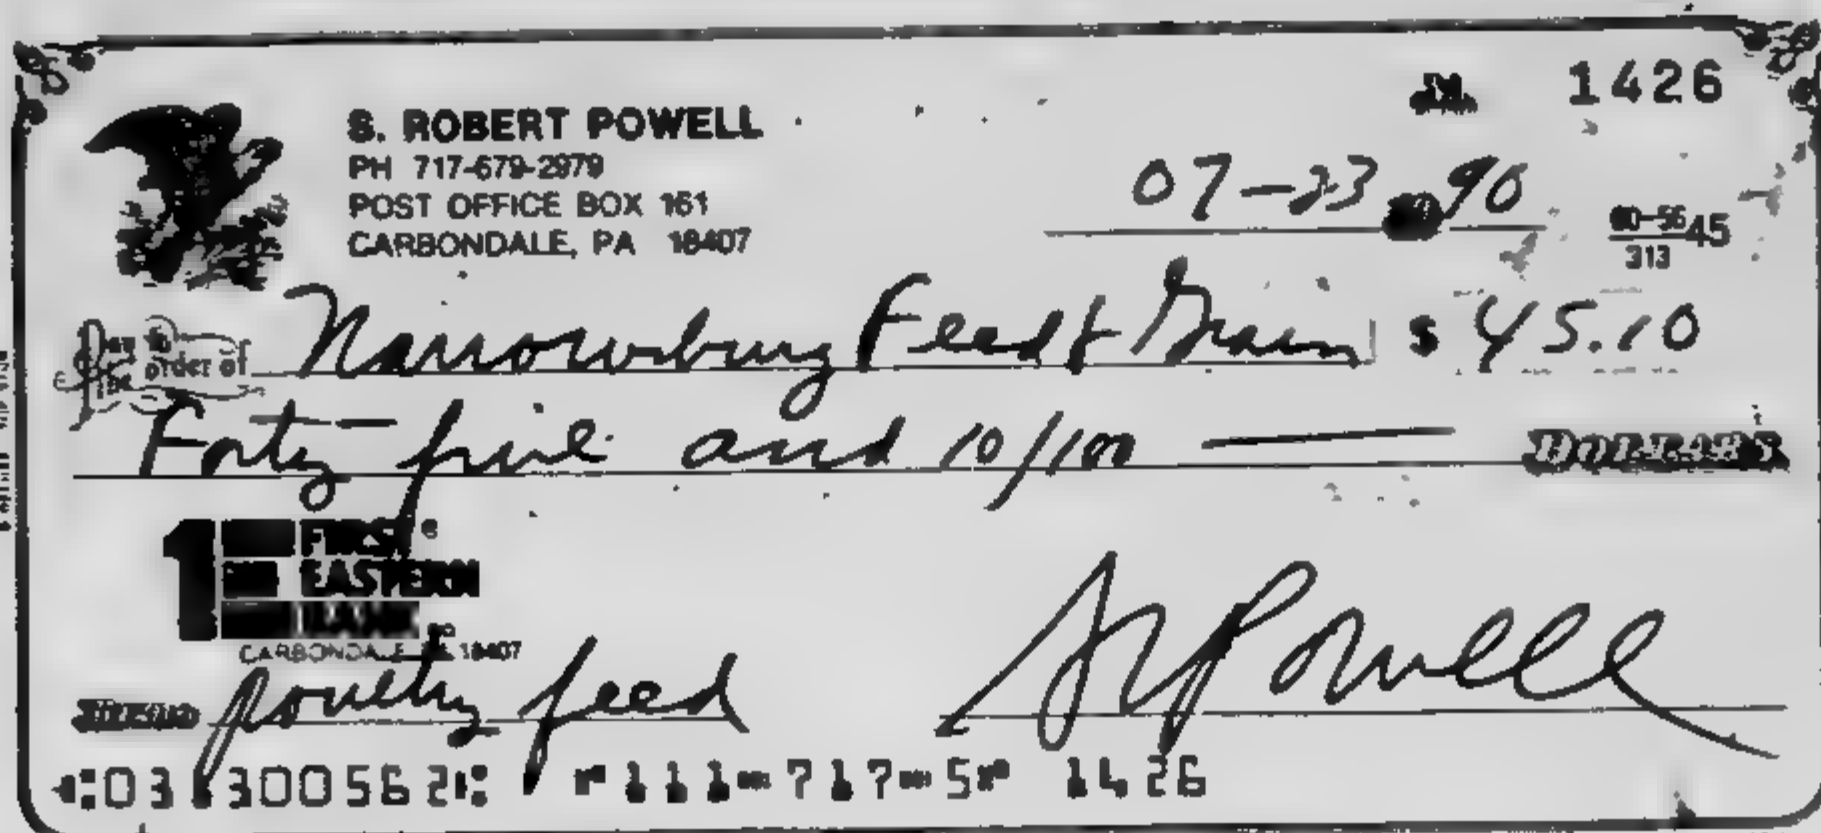 1426
S. ROBERT POWELL
PH 717-679-2979
POST OFFICE BOX 161
CARBONDALE, PA 18407
07-23 90
60-56 45
313
Pay to the order of Narrowsburg Feed & Grain $ 45.10
Forty-five and 10/100 DOLLARS
1 FIRST
EASTERN
BANK
CARBONDALE PA 18407
poultry feed SRPowell
⑆031300562⑆ ⑈111⑉717⑉5⑈ 1426